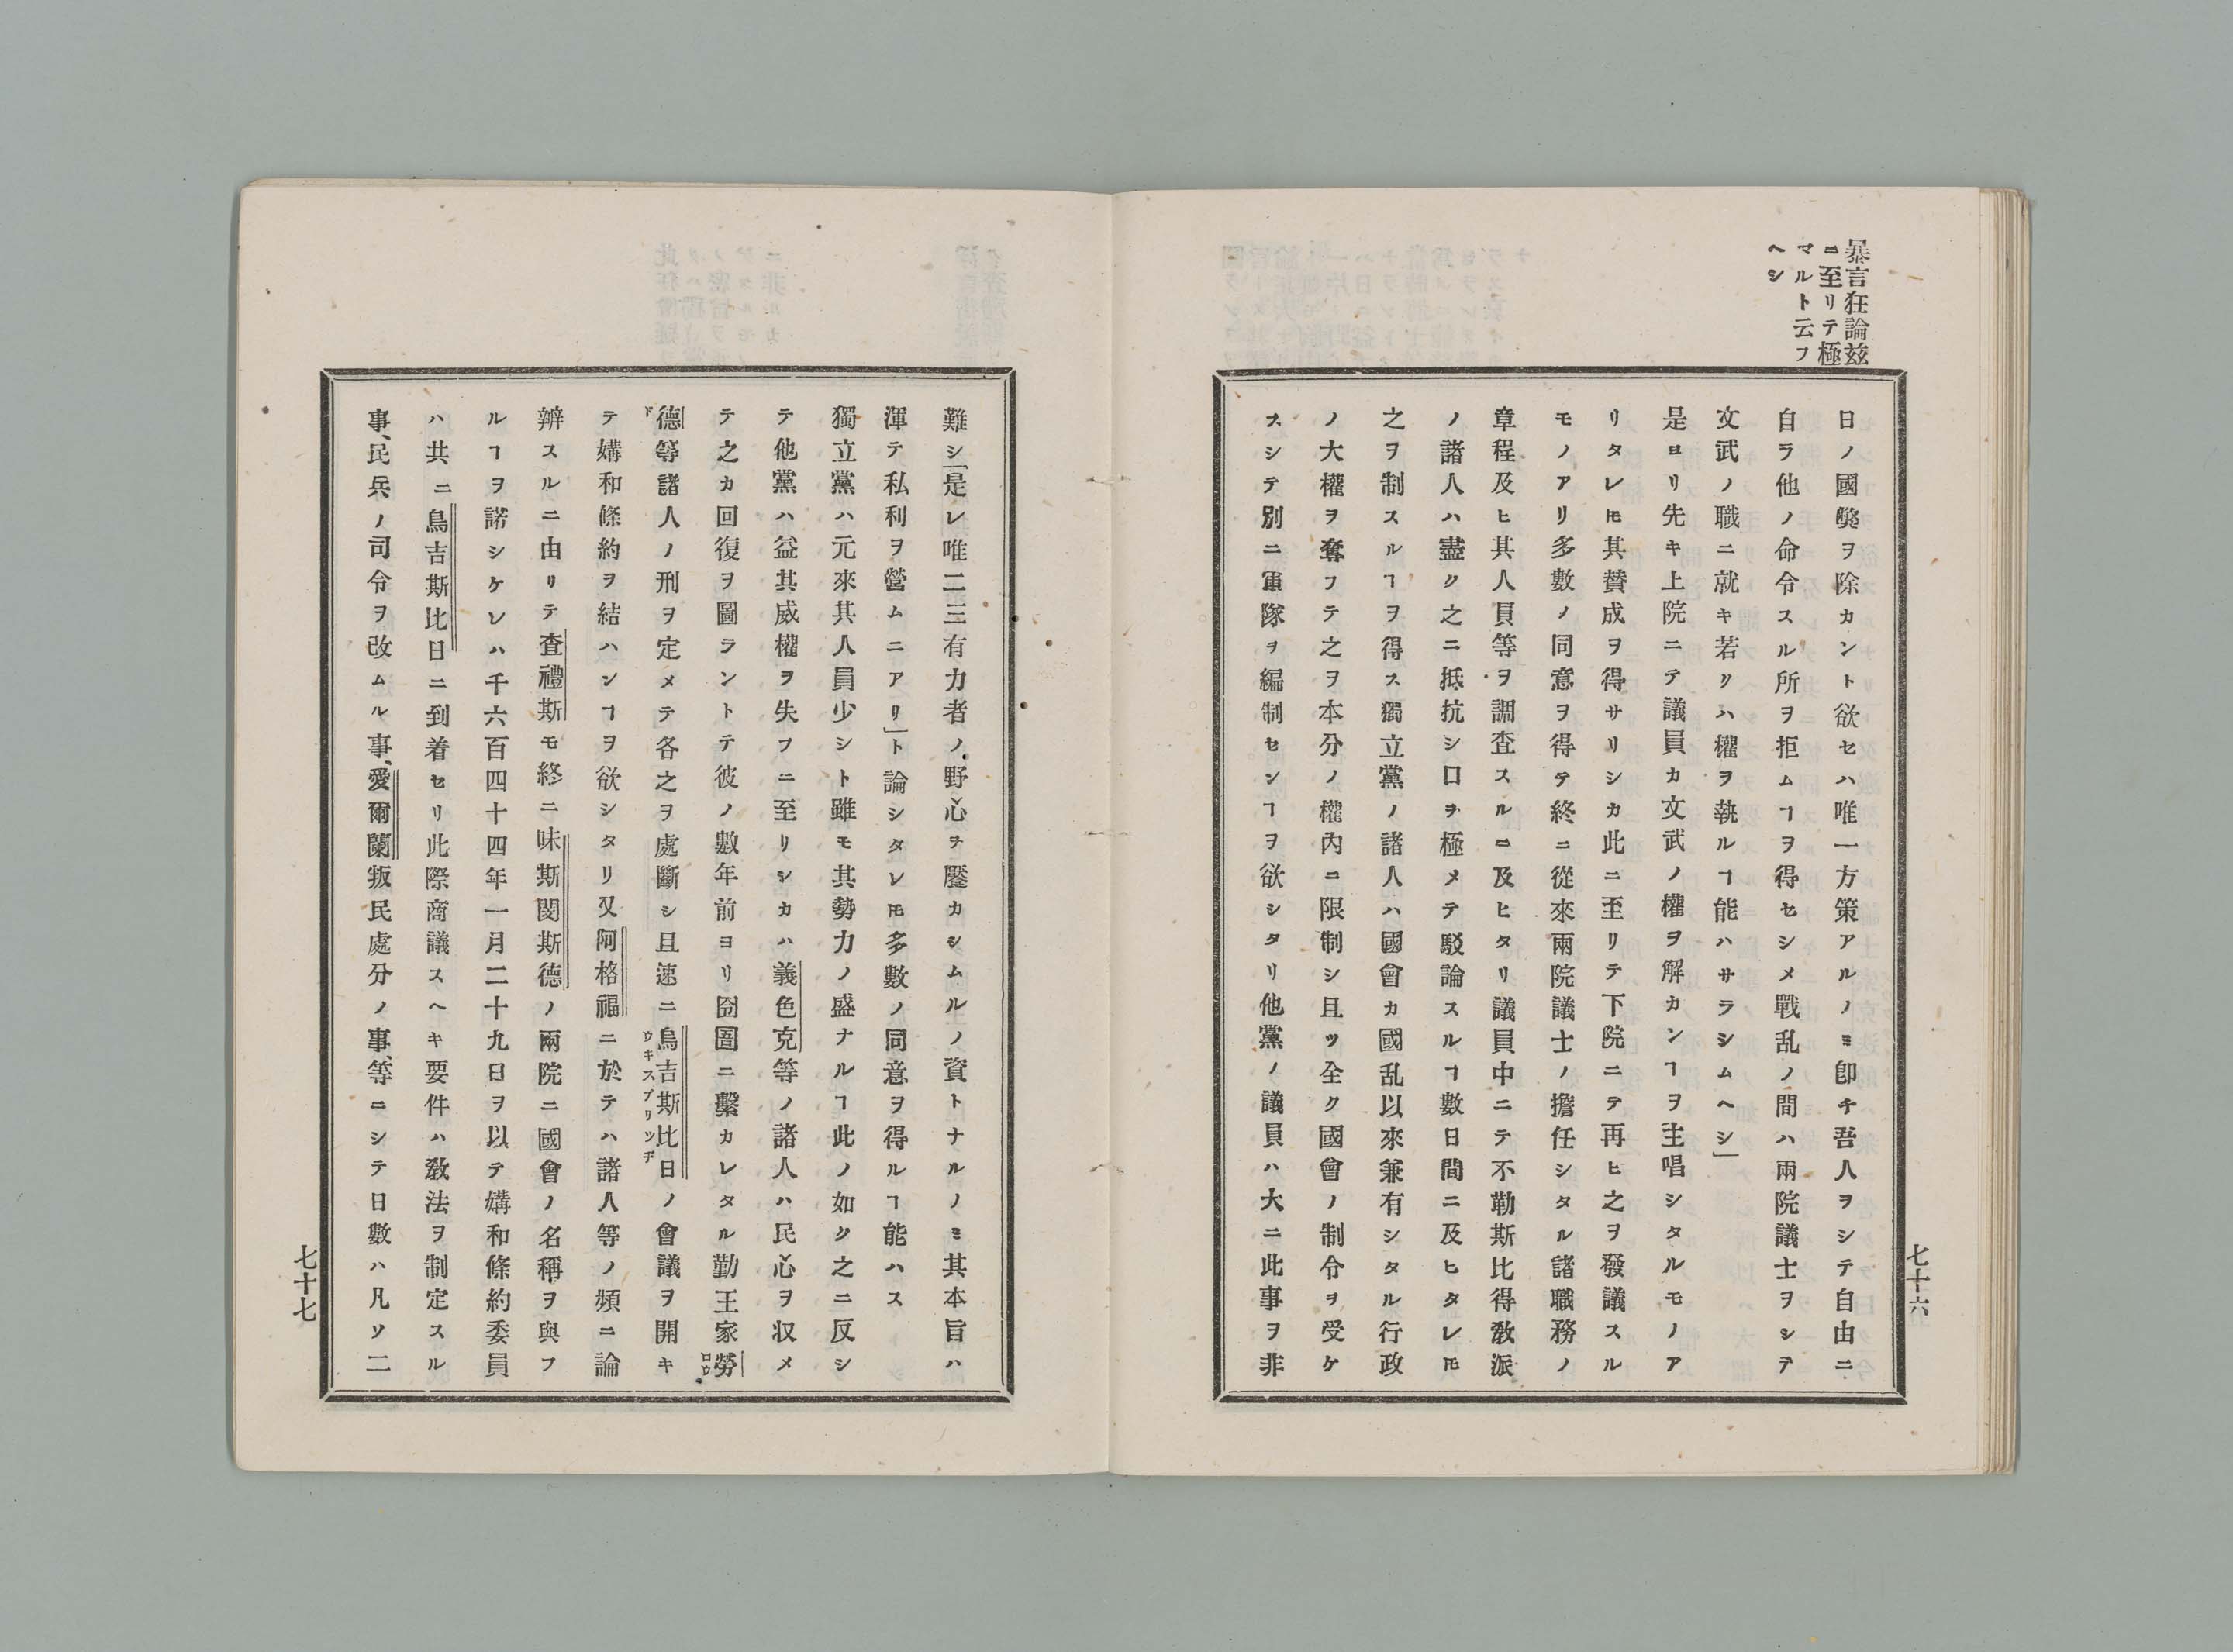 暴言狂論玆
ニ至リテ極
マルト云フ
ヘシ
日ノ國弊ヲ除カント欲セハ唯一方策アルノミ卽チ吾人ヲシテ自由ニ
自ラ他ノ命令スル所ヲ拒ムヿヲ得セシメ戰乱ノ間ハ兩院議士ヲシテ
文武ノ職ニ就キ若クハ權ヲ執ルヿ能ハサラシムヘシ」
是ヨリ先キ上院ニテ議員カ文武ノ權ヲ解カンヿヲ主唱シタルモノア
リタレ𪜈其賛成ヲ得サリシカ此ニ至リテ下院ニテ再ヒ之ヲ發議スル
モノアリ多數ノ同意ヲ得テ終ニ從來兩院議士ノ擔任シタル諸職務ノ
章程及ヒ其人員等ヲ調査スルニ及ヒタリ議員中ニテ不勒斯比得敎派
ノ諸人ハ盡ク之ニ抵抗シ口ヲ極メテ駁論スルヿ數日間ニ及ヒタレ𪜈
之ヲ制スルヿヲ得ス獨立黨ノ諸人ハ國會カ國乱以來兼有シタル行政
ノ大權ヲ奪フテ之ヲ本分ノ權內ニ限制シ且ツ全ク國會ノ制令ヲ受ケ
スシテ別ニ軍隊ヲ編制センヿヲ欲シタリ他黨ノ議員ハ大ニ此事ヲ非
七十六
難シ「是レ唯二三有力者ノ野心ヲ饜カシムルノ資トナルノミ其本旨ハ
渾テ私利ヲ營ムニアリ」ト論シタレ𪜈多數ノ同意ヲ得ルヿ能ハス
獨立黨ハ元來其人員少シト雖モ其勢力ノ盛ナルヿ此ノ如ク之ニ反シ
テ他黨ハ益其威權ヲ失フニ至リシカハ義色克等ノ諸人ハ民心ヲ収メ
テ之カ回復ヲ圖ラントテ彼ノ數年前ヨリ囹圄ニ繫カレタル勤王家勞
ロウ
德等諸人ノ刑ヲ定メテ各之ヲ處斷シ且速ニ烏吉斯比日ノ會議ヲ開キ
ド
ウキスブリッヂ
テ媾和條約ヲ結ハンヿヲ欲シタリ又阿格福ニ於テハ諸人等ノ頻ニ論
辨スルニ由リテ査禮斯モ終ニ味斯閔斯德ノ兩院ニ國會ノ名稱ヲ與フ
ルヿヲ諾シケレハ千六百四十四年一月二十九日ヲ以テ媾和條約委員
ハ共ニ烏吉斯比日ニ到着セリ此際商議スヘキ要件ハ敎法ヲ制定スル
事、民兵ノ司令ヲ改ムル事、愛爾蘭叛民處分ノ事、等ニシテ日數ハ凡ソ二
七十七